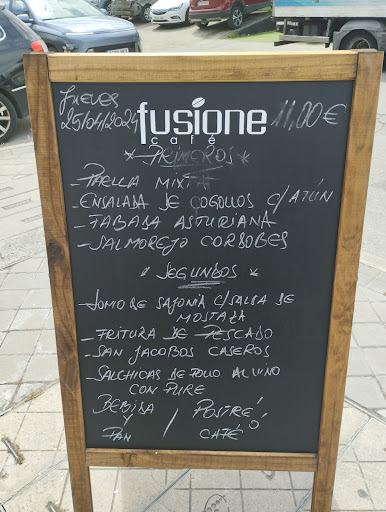 JUEVES
25/04/2024
fusione
café
11,00 €
* PRIMEROS *
- PAELLA MIXTA
- ENSALADA DE COGOLLOS C/ATÚN
- FABADA ASTURIANA
- SALMOREJO CORDOBES
* SEGUNDOS *
- LOMO DE SAJONIA C/SALSA DE
MOSTAZA
- FRITURA DE PESCADO
- SAN JACOBOS CASEROS
- SALCHICAS DE POLLO AL VINO
CON PURE
BEBIDA / POSTRE Ó
Y
PAN / CAFÉ